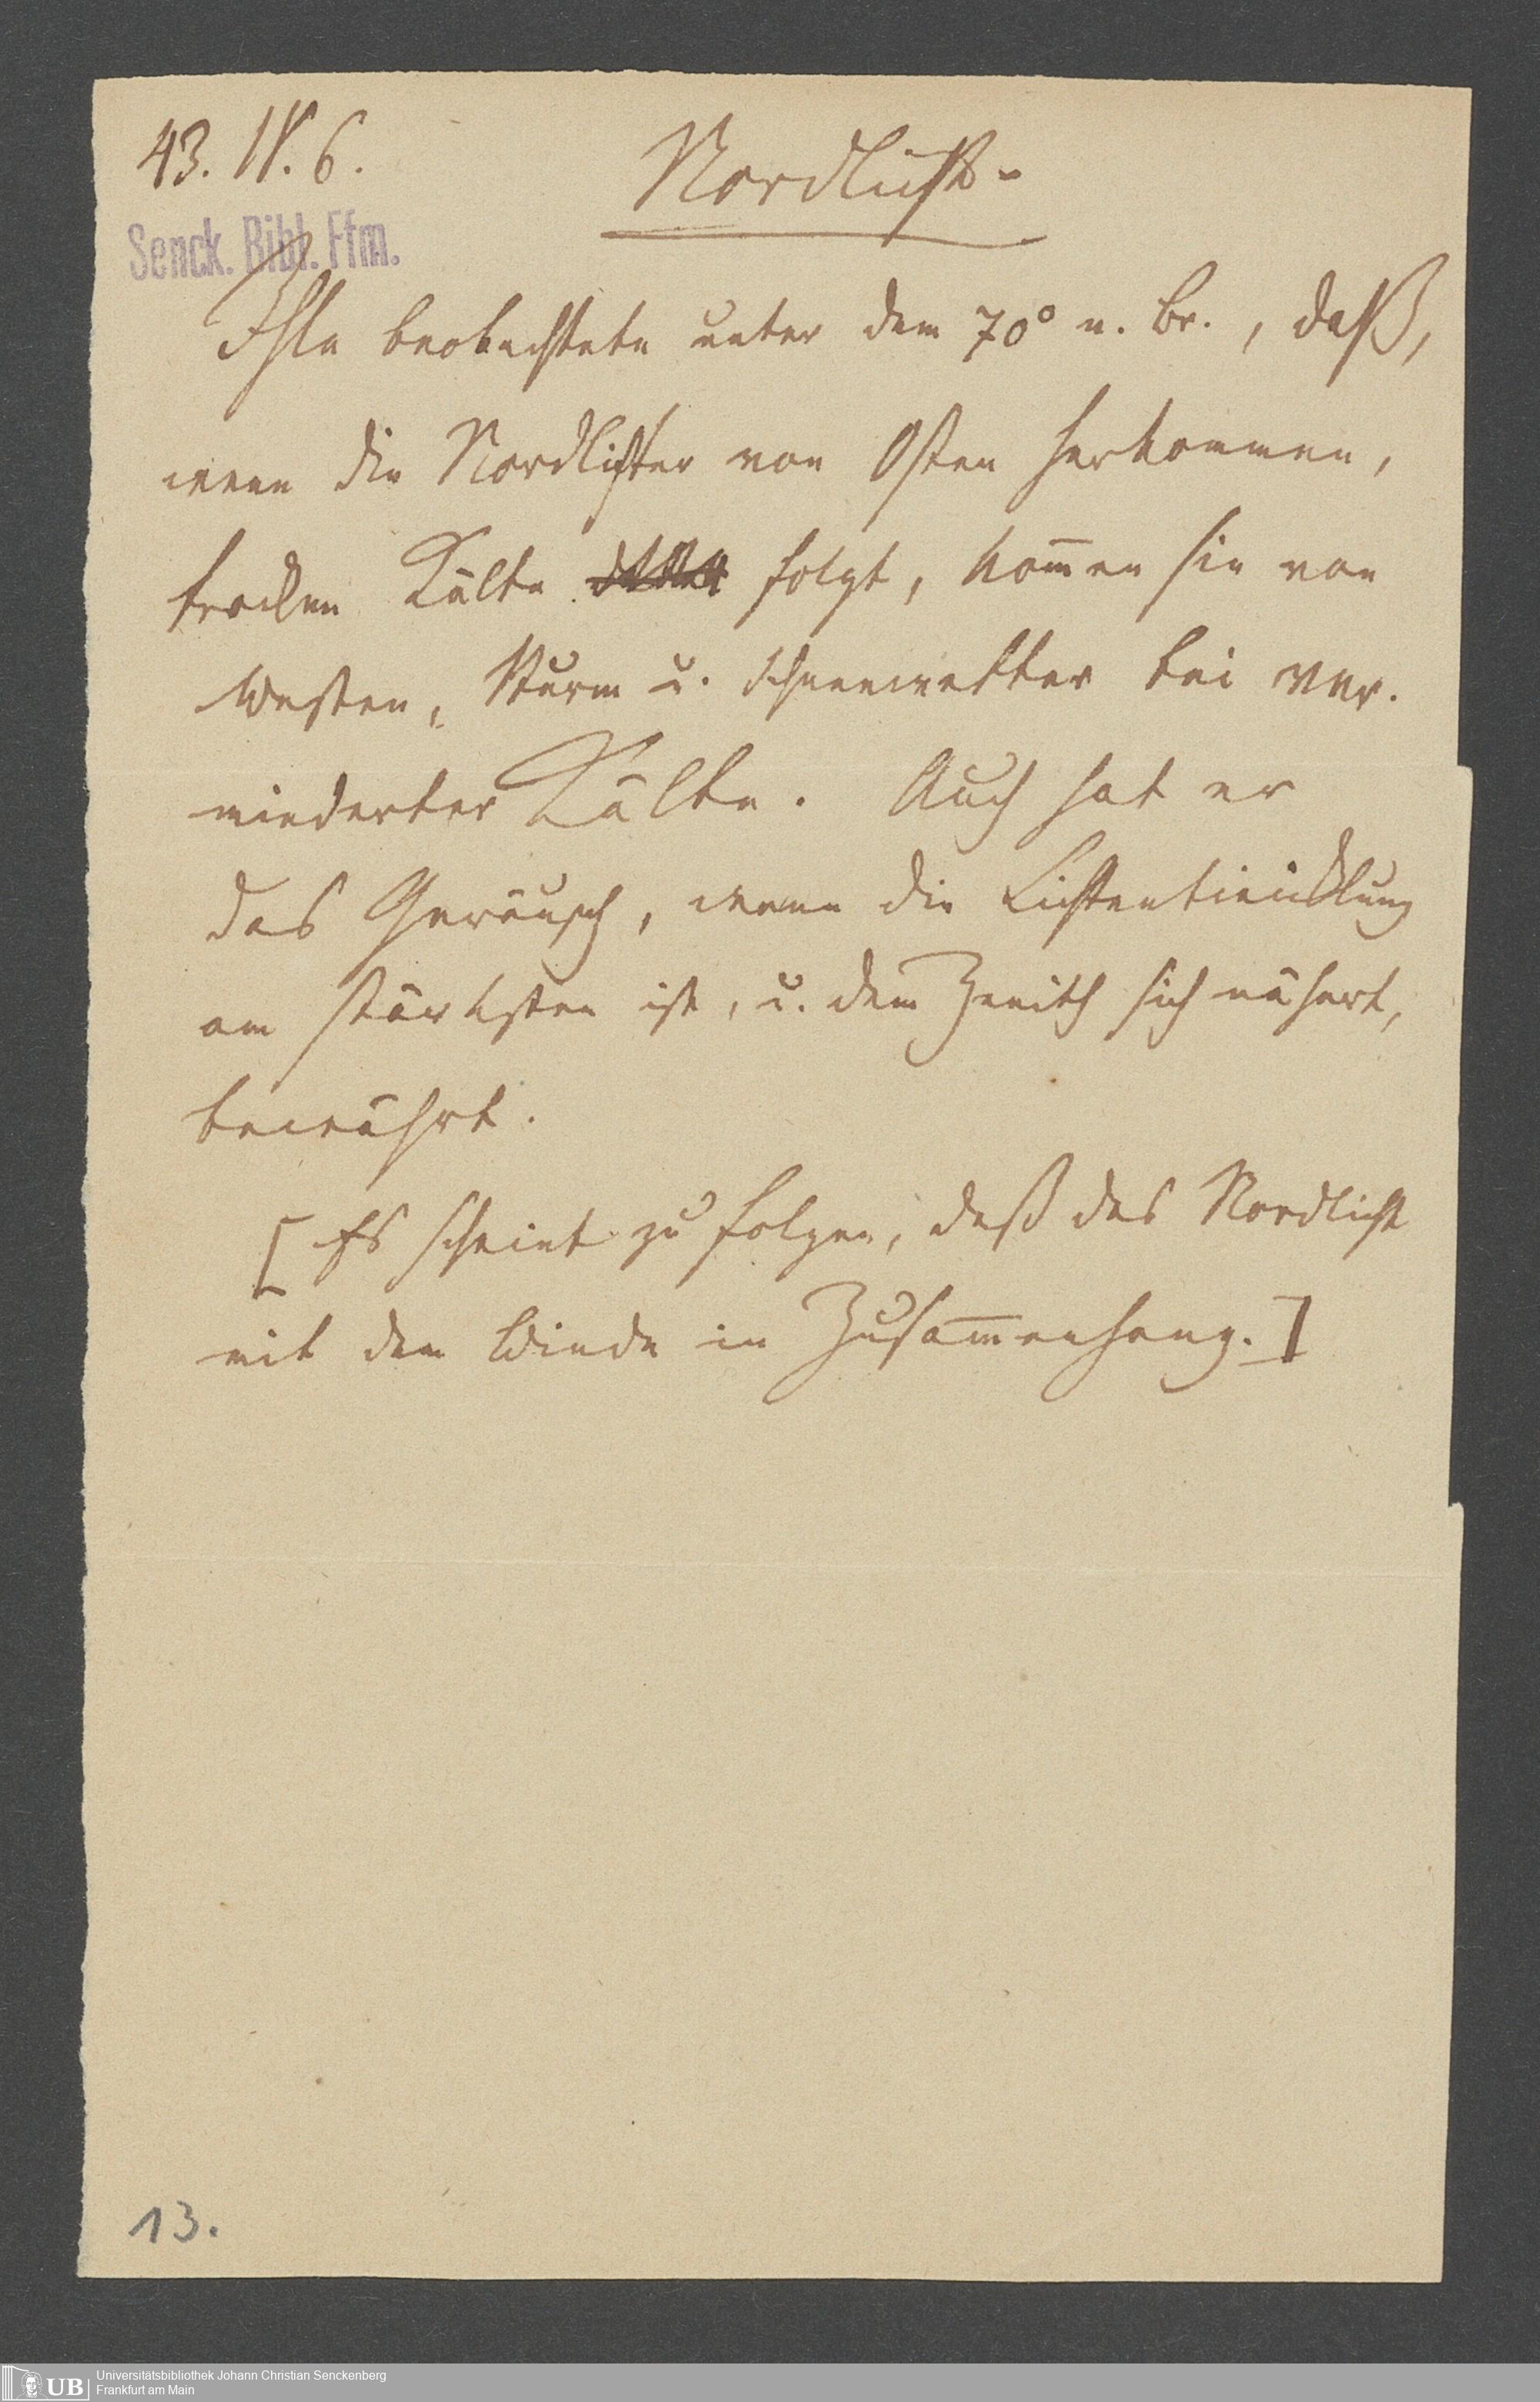 43. IV. 6.
Nordlicht.
Senck. Bibl. Ffm.
Ihle beobachtete unter dem 70° n. Br., daß,
wenn die Nordlichter von Osten herkommen,
trocken Kälte folgt, kom̅en sie von
Westen, Sturm u. Schneewetter bei ver-
minderter Kälte. Auch hat er
das Geräusch, wenn die Lichtentwicklung
am stärksten ist, u. dem Zenith sich nähert,
bewährt.
[Es scheint zu folgen, daß das Nordlicht
mit dem Winde in Zusam̅enhang.]
13.
UB
Universitätsbibliothek Johann Christian Senckenberg
Frankfurt am Main